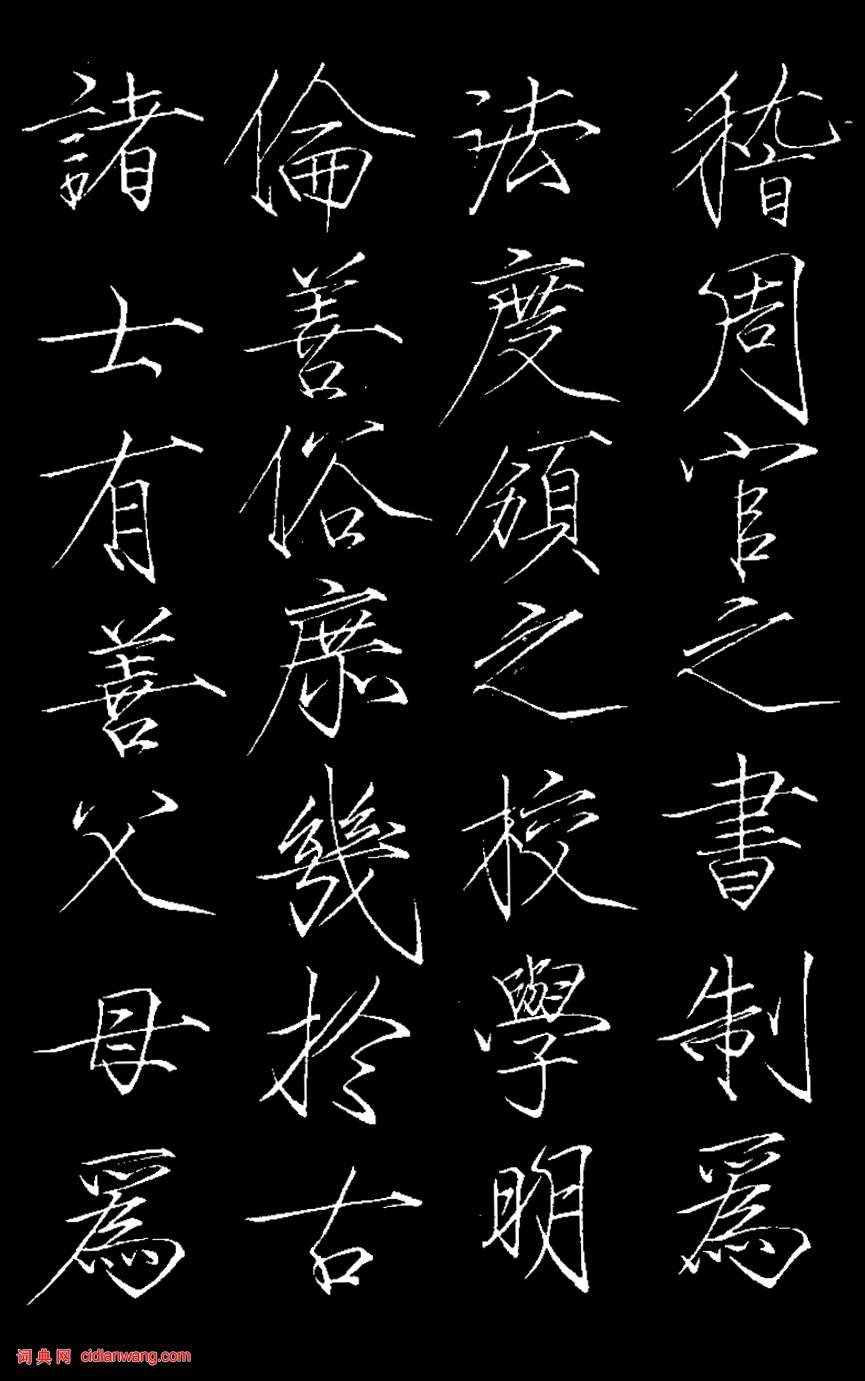 稽周官之書制為
法度頒之校學明
倫善俗庶幾於古
諸士有善父母為
词典网 cidianwang.com